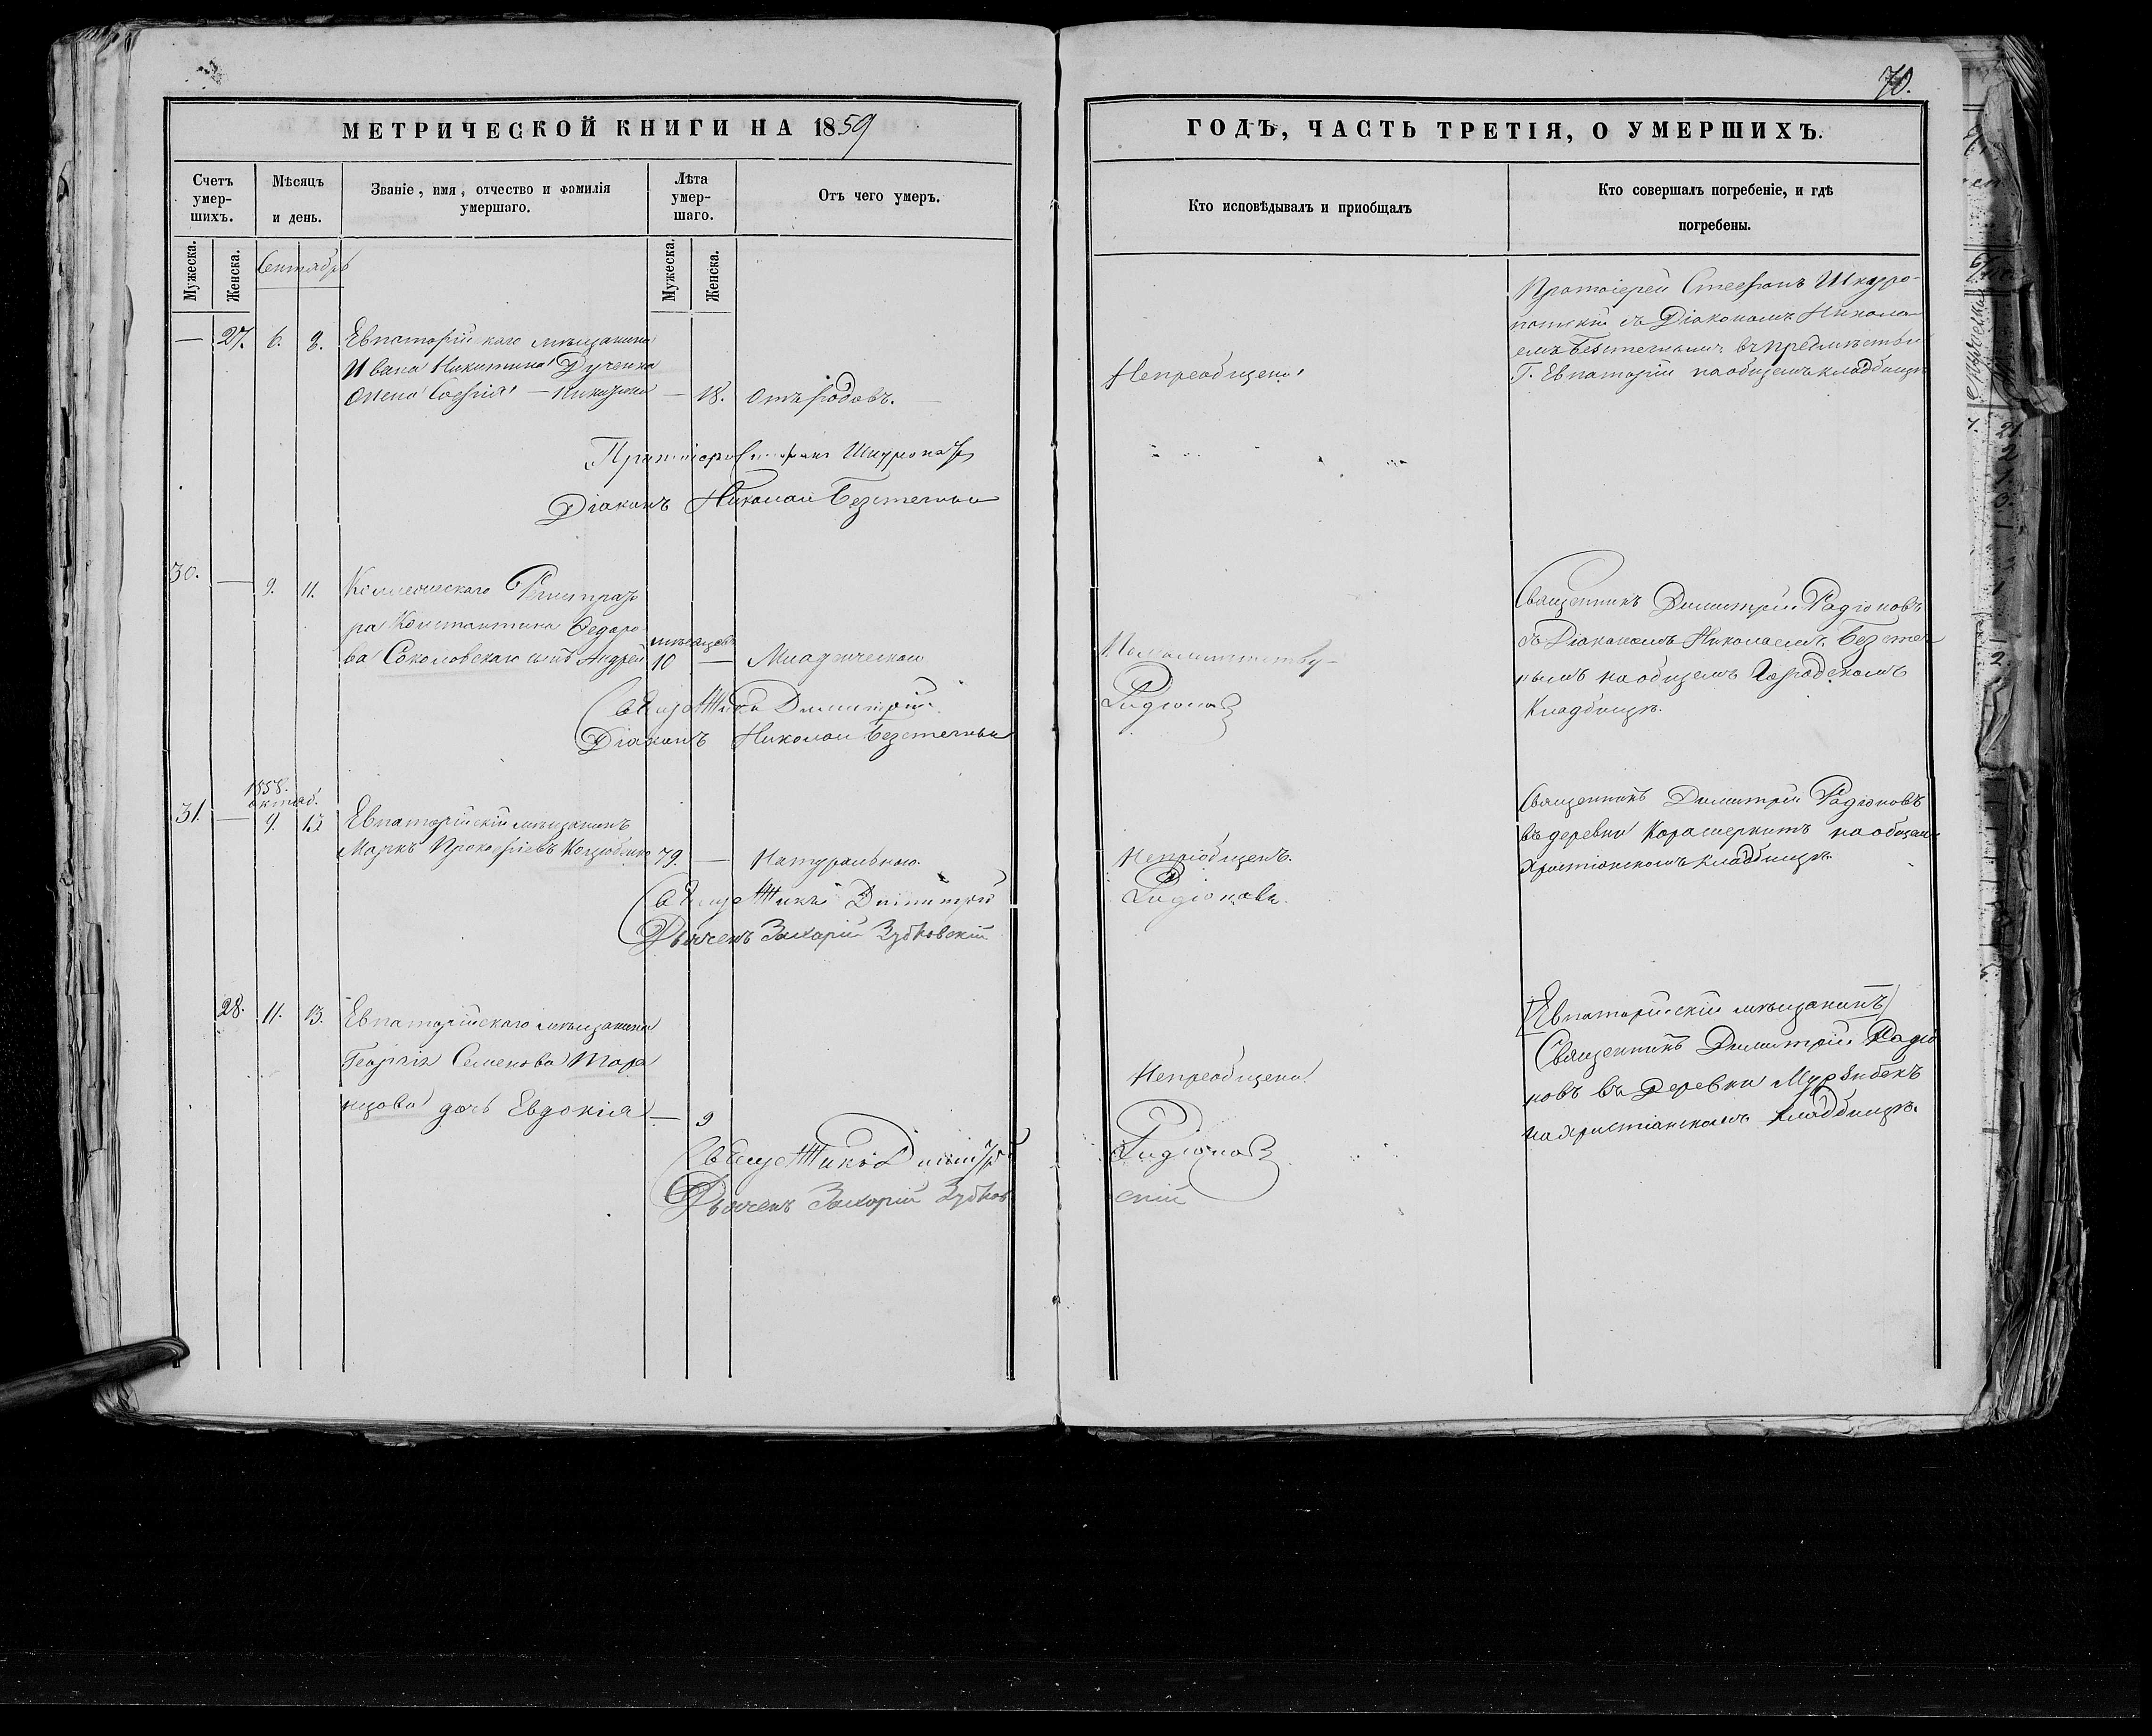 70.
МЕТРИЧЕСКОЙ КНИГИ НА 1859
ГОДЪ, ЧАСТЬ ТРЕТІЯ, О УМЕРШИХЪ.
Счетъ умер-
шихъ.
Мѣсяцъ
и день.
Званіе, имя, отчество и фамилія
умершаго.
Лѣта
умер-
шаго.
Отъ чего умеръ.
Кто исповѣдывалъ и приобщалъ
Кто совершалъ погребеніе, и гдѣ
погребены.
Мужеска.
Женска.
Сентябрь
Мужеска.
Женска.
— 27. 6. 8. Евпаторійскаго мѣщанина
Ивана Никитина
жена Софія — 18. Отъ родовъ.
Непреобщена
Протоіерей Стефанъ Шкуро-
патскій съ Діакономъ Никола-
емъ Безстечнымъ въ предмѣстьи
Г. Евпаторіи на общемъ кладбищѣ
Протоіерей Стефанъ
Діаконъ Николай Безстечный
30. — 9. 11. Коллежскаго Регистрато-
ра Константина Федоро-
ва Соколовскаго сынъ Андрей
мѣсяцовъ
10 — Младенческою
По малолѣтству
Священникъ Димитрій Радіоновъ
съ Діакономъ Николаемъ Безстеч-
нымъ на общемъ Городскомъ
Кладбищѣ.
Священникъ Димитрій Радіоновъ
Діаконъ Николай Безстечный
1858.
октяб.
31. — 9. 12 Евпаторійскій мѣщанинъ
Маркъ Прокофіевъ Коцюбенко 79. — Натуральною.
Непріобщенъ.
Священникъ Димитрій Радіоновъ
въ деревни на общемъ
Христіанскомъ кладбищѣ.
Священникъ Димитрій Радіоновъ.
Дьячекъ Захарій Зубковскій
28. 11. 13. Евпаторійскаго мѣщанина
Георгія Семенова Тара
нцова дочь Евдокія — 9
Непреобщена.
[Евпаторійскій мѣщанинъ]
Священникъ Димитрій Радіо
новъ въ Деревни
на христіанскомъ кладбищѣ.
Священникъ Димитрій Радіоновъ
Дьячекъ Захарій Зубков
скій